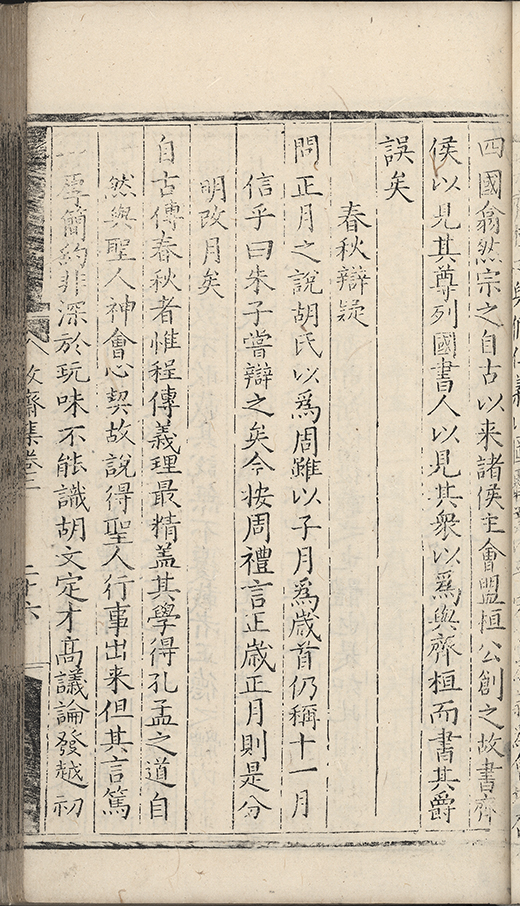 四國翕然宗之自古以来諸侯主會盟桓公創之故書齊
侯以見其尊列國書人以見其衆以爲與齊桓而書其爵
誤矣
春秋辯疑
問正月之說胡氏以爲周雖以子月爲歲首仍稱十一月
信乎曰朱子嘗辯之矣今按周禮言正歲正月則是分
明改月矣
自古傳春秋者惟程傳義理最精盖其學得孔孟之道自
然與聖人神會心契故說得聖人行事出来但其言篤
厚簡約非深於玩味不能識胡文定才髙議論發越初
敬齋集卷二
二十六